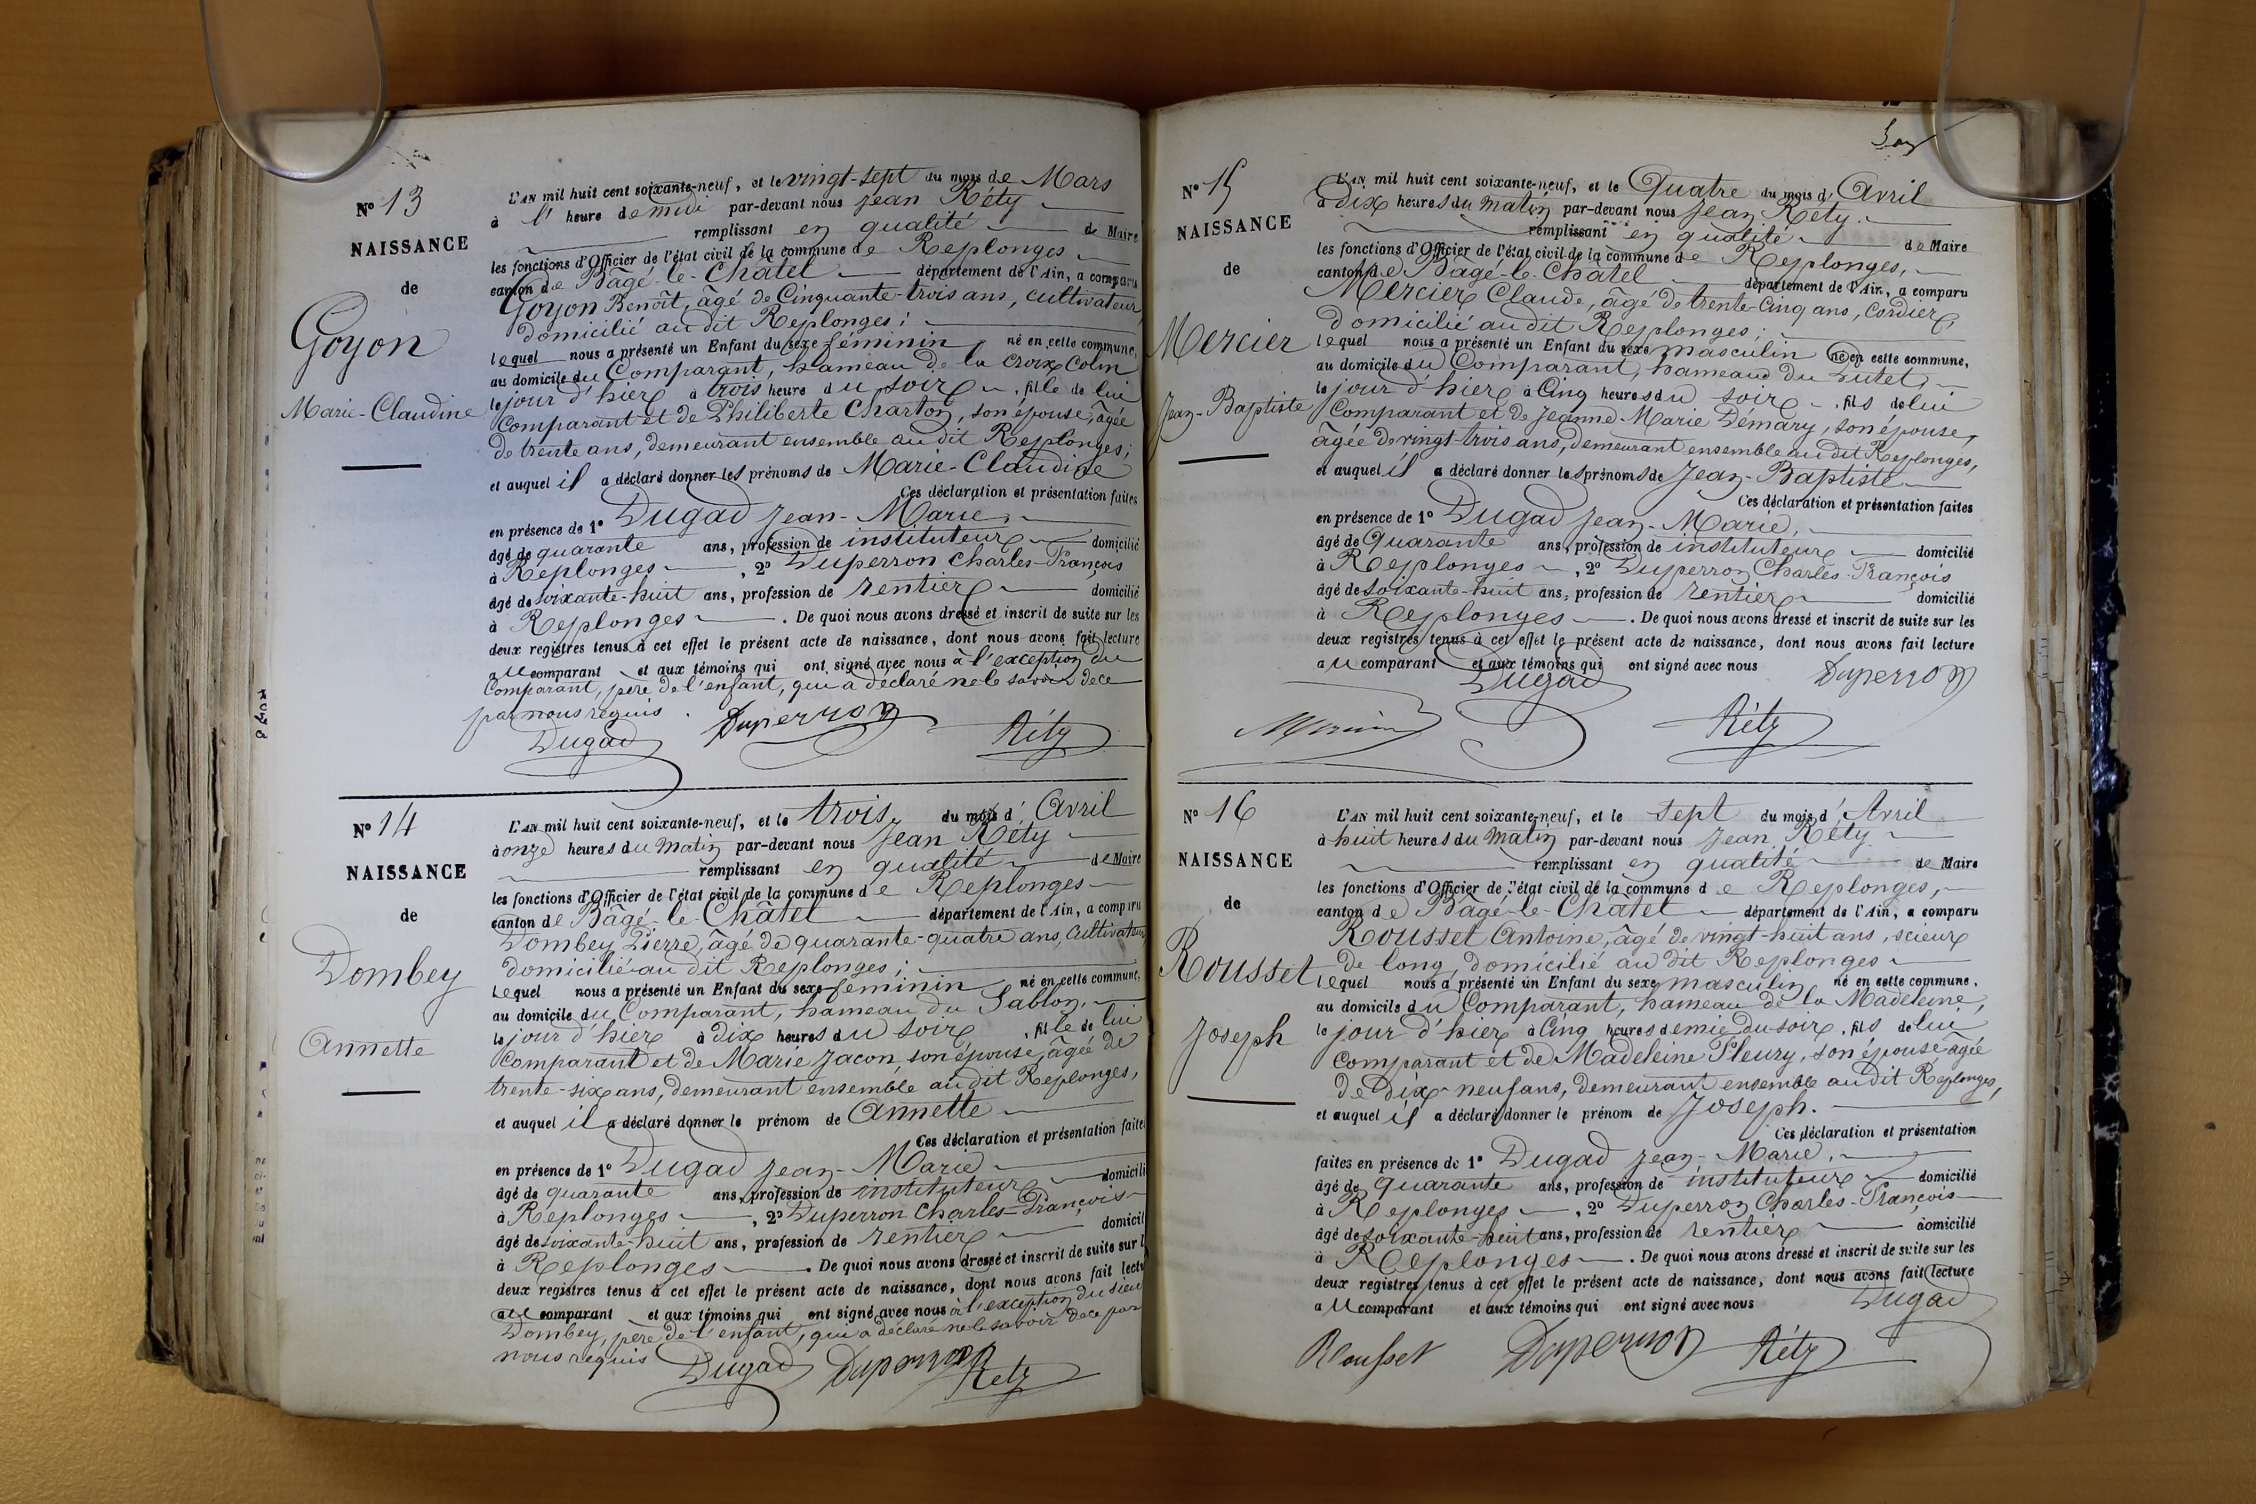 Nº 13
NAISSANCE
de
Goyon
Marie-Claudine
L'AN mil huit cent soixante-neuf, et le vingt-sept du mois de Mars
à l' heure de midi par-devant nous Jean Réty
remplissant en qualité de Maire
les fonctions d'Officier de l'état civil de la commune de Replonges
canton de Bâgé-le-Châtel département de l'Ain, a comparu
Goyon Benoît, âgé de Cinquante-trois ans, cultivateur,
domicilié au dit Replonges;
lequel nous a présenté un Enfant du sexe féminin né en cette commune,
au domicile du Comparant, hameau de la Croix Colin
le jour d'hier à trois heure du soir, fille de lui
Comparant et de Philiberte Charton, son épouse, âgée
de trente ans, demeurant ensemble au dit Replonges;
et auquel il a déclaré donner les prénoms de Marie-Claudine
Ces déclaration et présentation faites
en présence de 1º Dugad Jean-Marie,
âgé de quarante ans, profession de instituteur domicilié
à Replonges, 2º Duperron Charles-François
âgé de soixante-huit ans, profession de rentier domicilié
à Replonges. De quoi nous avons dressé et inscrit de suite sur les
deux registres tenus à cet effet le présent acte de naissance, dont nous avons fait lecture
au comparant et aux témoins qui ont signé avec nous à l'exception du
Comparant, père de l'enfant, qui a déclaré ne le savoir de ce
par nous requis.
Duperron
Dugad Réty
Nº 14
NAISSANCE
de
Dombey
Annette
L'AN mil huit cent soixante-neuf, et le trois du mois d' Avril
à onze heures du Matin par-devant nous Jean Réty
remplissant en qualité de Maire
les fonctions d'Officier de l'état civil de la commune de Replonges
canton de Bâgé-le-Châtel département de l'Ain, a comparu
Dombey Pierre, âgé de quarante-quatre ans, Cultivateur
domicilié au dit Replonges;
Lequel nous a présenté un Enfant du sexe féminin né en cette commune,
au domicile du Comparant, hameau du Sablon,
le jour d'hier à dix heures du soir, fille de lui
Comparant et de Marie Jacon, son épouse, âgée de
trente-six ans, demeurant ensemble au dit Replonges,
et auquel il a déclaré donner le prénom de Annette
Ces déclaration et présentation faites
en présence de 1º Dugad Jean-Marie
âgé de quarante ans, profession de instituteur domicili
à Replonges, 2º Duperron Charles-François
âgé de soixante-huit ans, profession de rentier domicil
à Replonges. De quoi nous avons dressé et inscrit de suite sur l
deux registres tenus à cet effet le présent acte de naissance, dont nous avons fait lectu
au comparant et aux témoins qui ont signé avec nous à l'exception du sieur
Dombey, père de l'enfant, qui a déclaré ne le savoir de ce par
nous requis Dugad Duperron
Réty
Nº 15
NAISSANCE
de
Mercier
Jean-Baptiste
L'AN mil huit cent soixante-neuf, et le Quatre du mois d' Avril
à Dix heures du Matin par-devant nous Jean Réty
remplissant en qualité de Maire
les fonctions d'Officier de l'état civil de la commune de Replonges,
canton de Bâgé-le-Châtel département de l'Ain, a comparu
Mercier Claude, âgé de trente-cinq ans, cordier,
domicilié au dit Replonges;
lequel nous a présenté un Enfant du sexe masculin né en cette commune,
au domicile du Comparant, hameau du
le jour d'hier à Cinq heures du soir, fils de lui
Comparant et de Jeanne-Marie Démary, son épouse,
âgée de vingt-trois ans, demeurant ensemble au dit Replonges,
et auquel il a déclaré donner les prénoms de Jean-Baptiste
Ces déclaration et présentation faites
en présence de 1º Dugad Jean-Marie,
âgé de Quarante ans, profession de instituteur domicilié
à Replonges, 2º Duperron Charles-François
âgé de soixante-huit ans, profession de rentier domicilié
à Replonges. De quoi nous avons dressé et inscrit de suite sur les
deux registres tenus à cet effet le présent acte de naissance, dont nous avons fait lecture
au comparant et aux témoins qui ont signé avec nous Duperron
Dugad
Réty
Nº 16
NAISSANCE
de
Rousset
Joseph
L'AN mil huit cent soixante-neuf, et le sept du mois d' Avril
à huit heures du Matin par-devant nous Jean Réty
remplissant en qualité de Maire
les fonctions d'Officier de l'état civil de la commune de Replonges,
canton de Bâgé-le-Châtel département de l'Ain, a comparu
Rousset Antoine, âgé de vingt-huit ans, scieur
de long, domicilié au dit Replonges
lequel nous a présenté un Enfant du sexe masculin né en cette commune,
au domicile du Comparant, hameau de la Madeleine,
le jour d'hier à Cinq heures demie du soir, fils de lui
Comparant et de Madeleine Fleury, son épouse âgée
de Dix-neuf ans, demeurant ensemble au dit Replonges,
et auquel il a déclaré donner le prénom de Joseph.
Ces déclaration et présentation
faites en présence de 1º Dugad Jean-Marie,
âgé de Quarante ans, profession de instituteur domicilié
à Replonges, 2º Duperron Charles-François
âgé de soixante-huit ans, profession de rentier domicilié
à Replonges. De quoi nous avons dressé et inscrit de suite sur les
deux registres tenus à cet effet le présent acte de naissance, dont nous avons fait lecture
au comparant et aux témoins qui ont signé avec nous Dugad
Rousset Duperron Réty